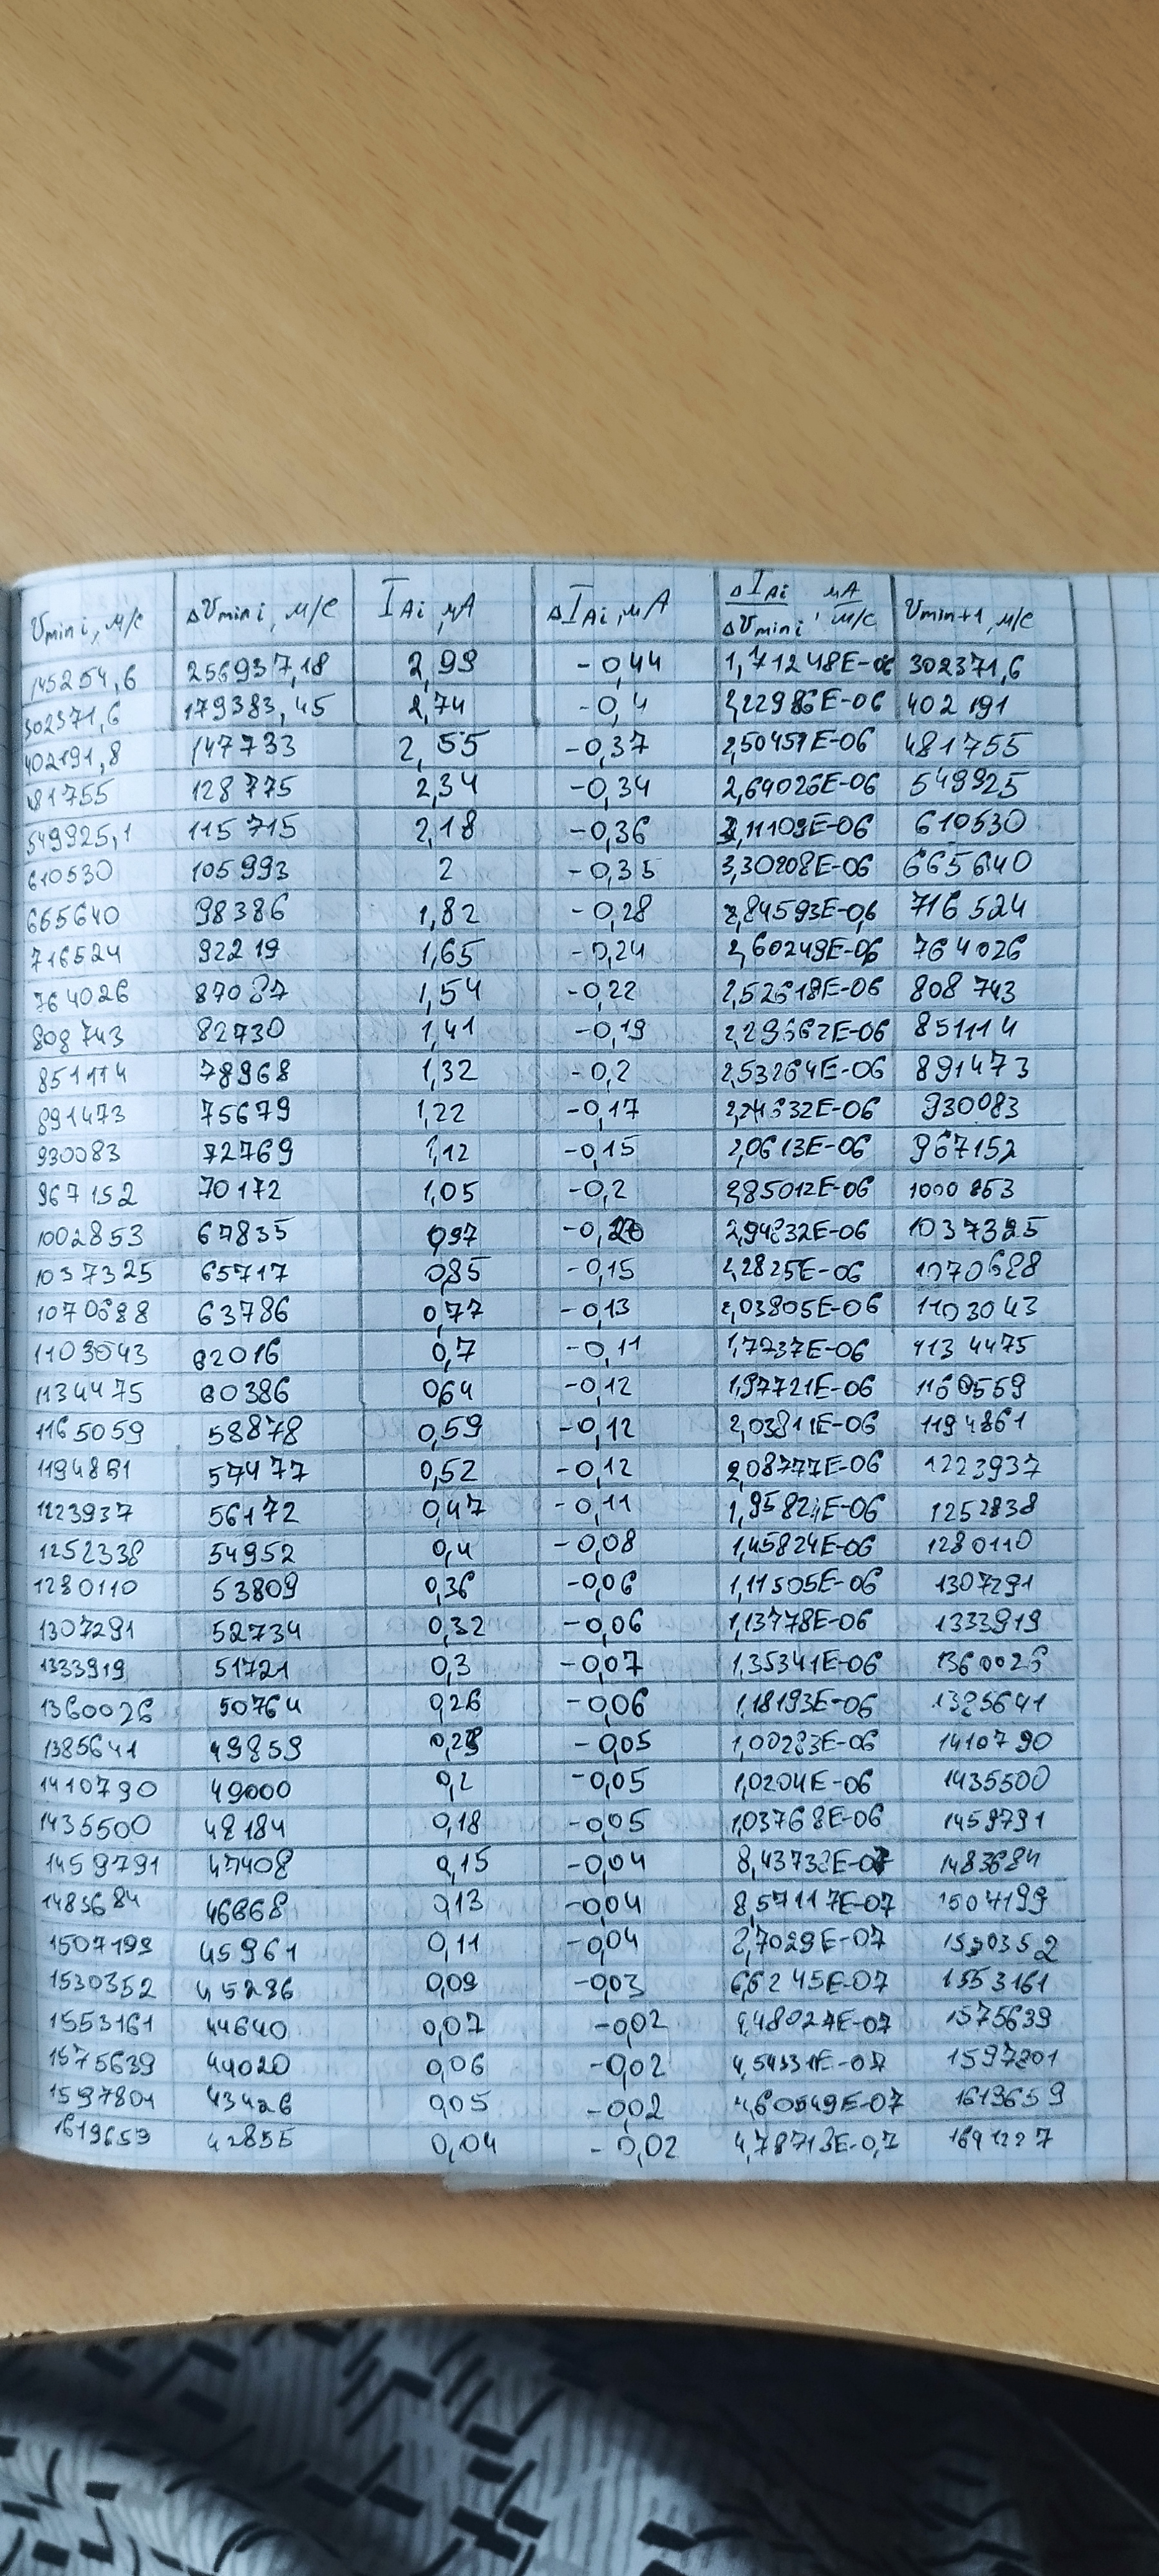 υmin i, м/с Δυmin i, м/с IAi, мА ΔIAi, мА ΔIAi/Δυmin i, мА/м/с υmin+1, м/с
145254,6 256937,18 2,99 -0,44 1,71248E-06 302371,6
302371,6 179383,45 2,74 -0,4 2,22986E-06 402191
402191,8 147733 2,55 -0,37 2,50451E-06 481755
81755 128775 2,34 -0,34 2,64026E-06 549925
549925,1 115715 2,18 -0,36 3,11109E-06 610530
610530 105993 2 -0,35 3,30208E-06 665640
665640 98386 1,82 -0,28 2,84593E-0,6 716524
716524 92219 1,65 -0,24 2,60249E-06 764026
764026 87087 1,54 -0,22 2,52618E-06 808743
808743 82730 1,41 -0,19 2,29662E-06 851114
851114 78968 1,32 -0,2 2,53264E-06 891473
891473 75679 1,22 -0,17 2,24632E-06 930083
930083 72769 1,12 -0,15 2,0613E-06 967152
967152 70172 1,05 -0,2 2,85012E-06 1000853
1002853 67835 0,97 2,94832E-06 1037325
1037325 65717 0,85 -0,15 2,2825E-06 1070688
1070688 63786 0,77 -0,13 2,03805E-06 1103043
1103043 62016 0,7 -0,11 1,7737E-06 1134475
1134475 60386 064 -0,12 1,97721E-06 1160559
1165059 58878 0,59 -0,12 2,03811E-06 1194861
1194861 57477 0,52 -0,12 2,08777E-06 1223937
1223937 56172 0,47 -0,11 1,95824E-06 1252838
1252338 54952 0,4 -0,08 1,45824E-06 1280110
1280110 53809 0,36 -0,06 1,11505E-06 1307291
1307291 52734 0,32 -0,06 1,13778E-06 1333919
1333919 51721 0,3 -0,07 1,35341E-06 1360026
1360026 50764 0,26 -0,06 1,18193E-06 1385641
1385641 49859 -0,05 1,00283E-06 1410790
1410790 49000 0,2 -0,05 1,0204E-06 1435500
1435500 48184 0,18 -0,05 1,03768E-06 1459791
1459791 47408 0,15 -0,04 8,43738E-07 1483684
1483684 46668 0,13 -0,04 8,57117E-07 1507199
1507199 45961 0,11 -0,04 8,7029E-07 1530352
1530352 45286 0,09 -0,03 6,6245E-07 1553161
1553161 44640 0,07 -0,02 4,48027E-07 1575639
1575639 44020 0,06 -0,02 4,54331E-07 1597801
1597801 43426 0,05 -0,02 4,60549E-07 1619659
1619659 42855 0,04 -0,02 4,78713E-0,7 1691227